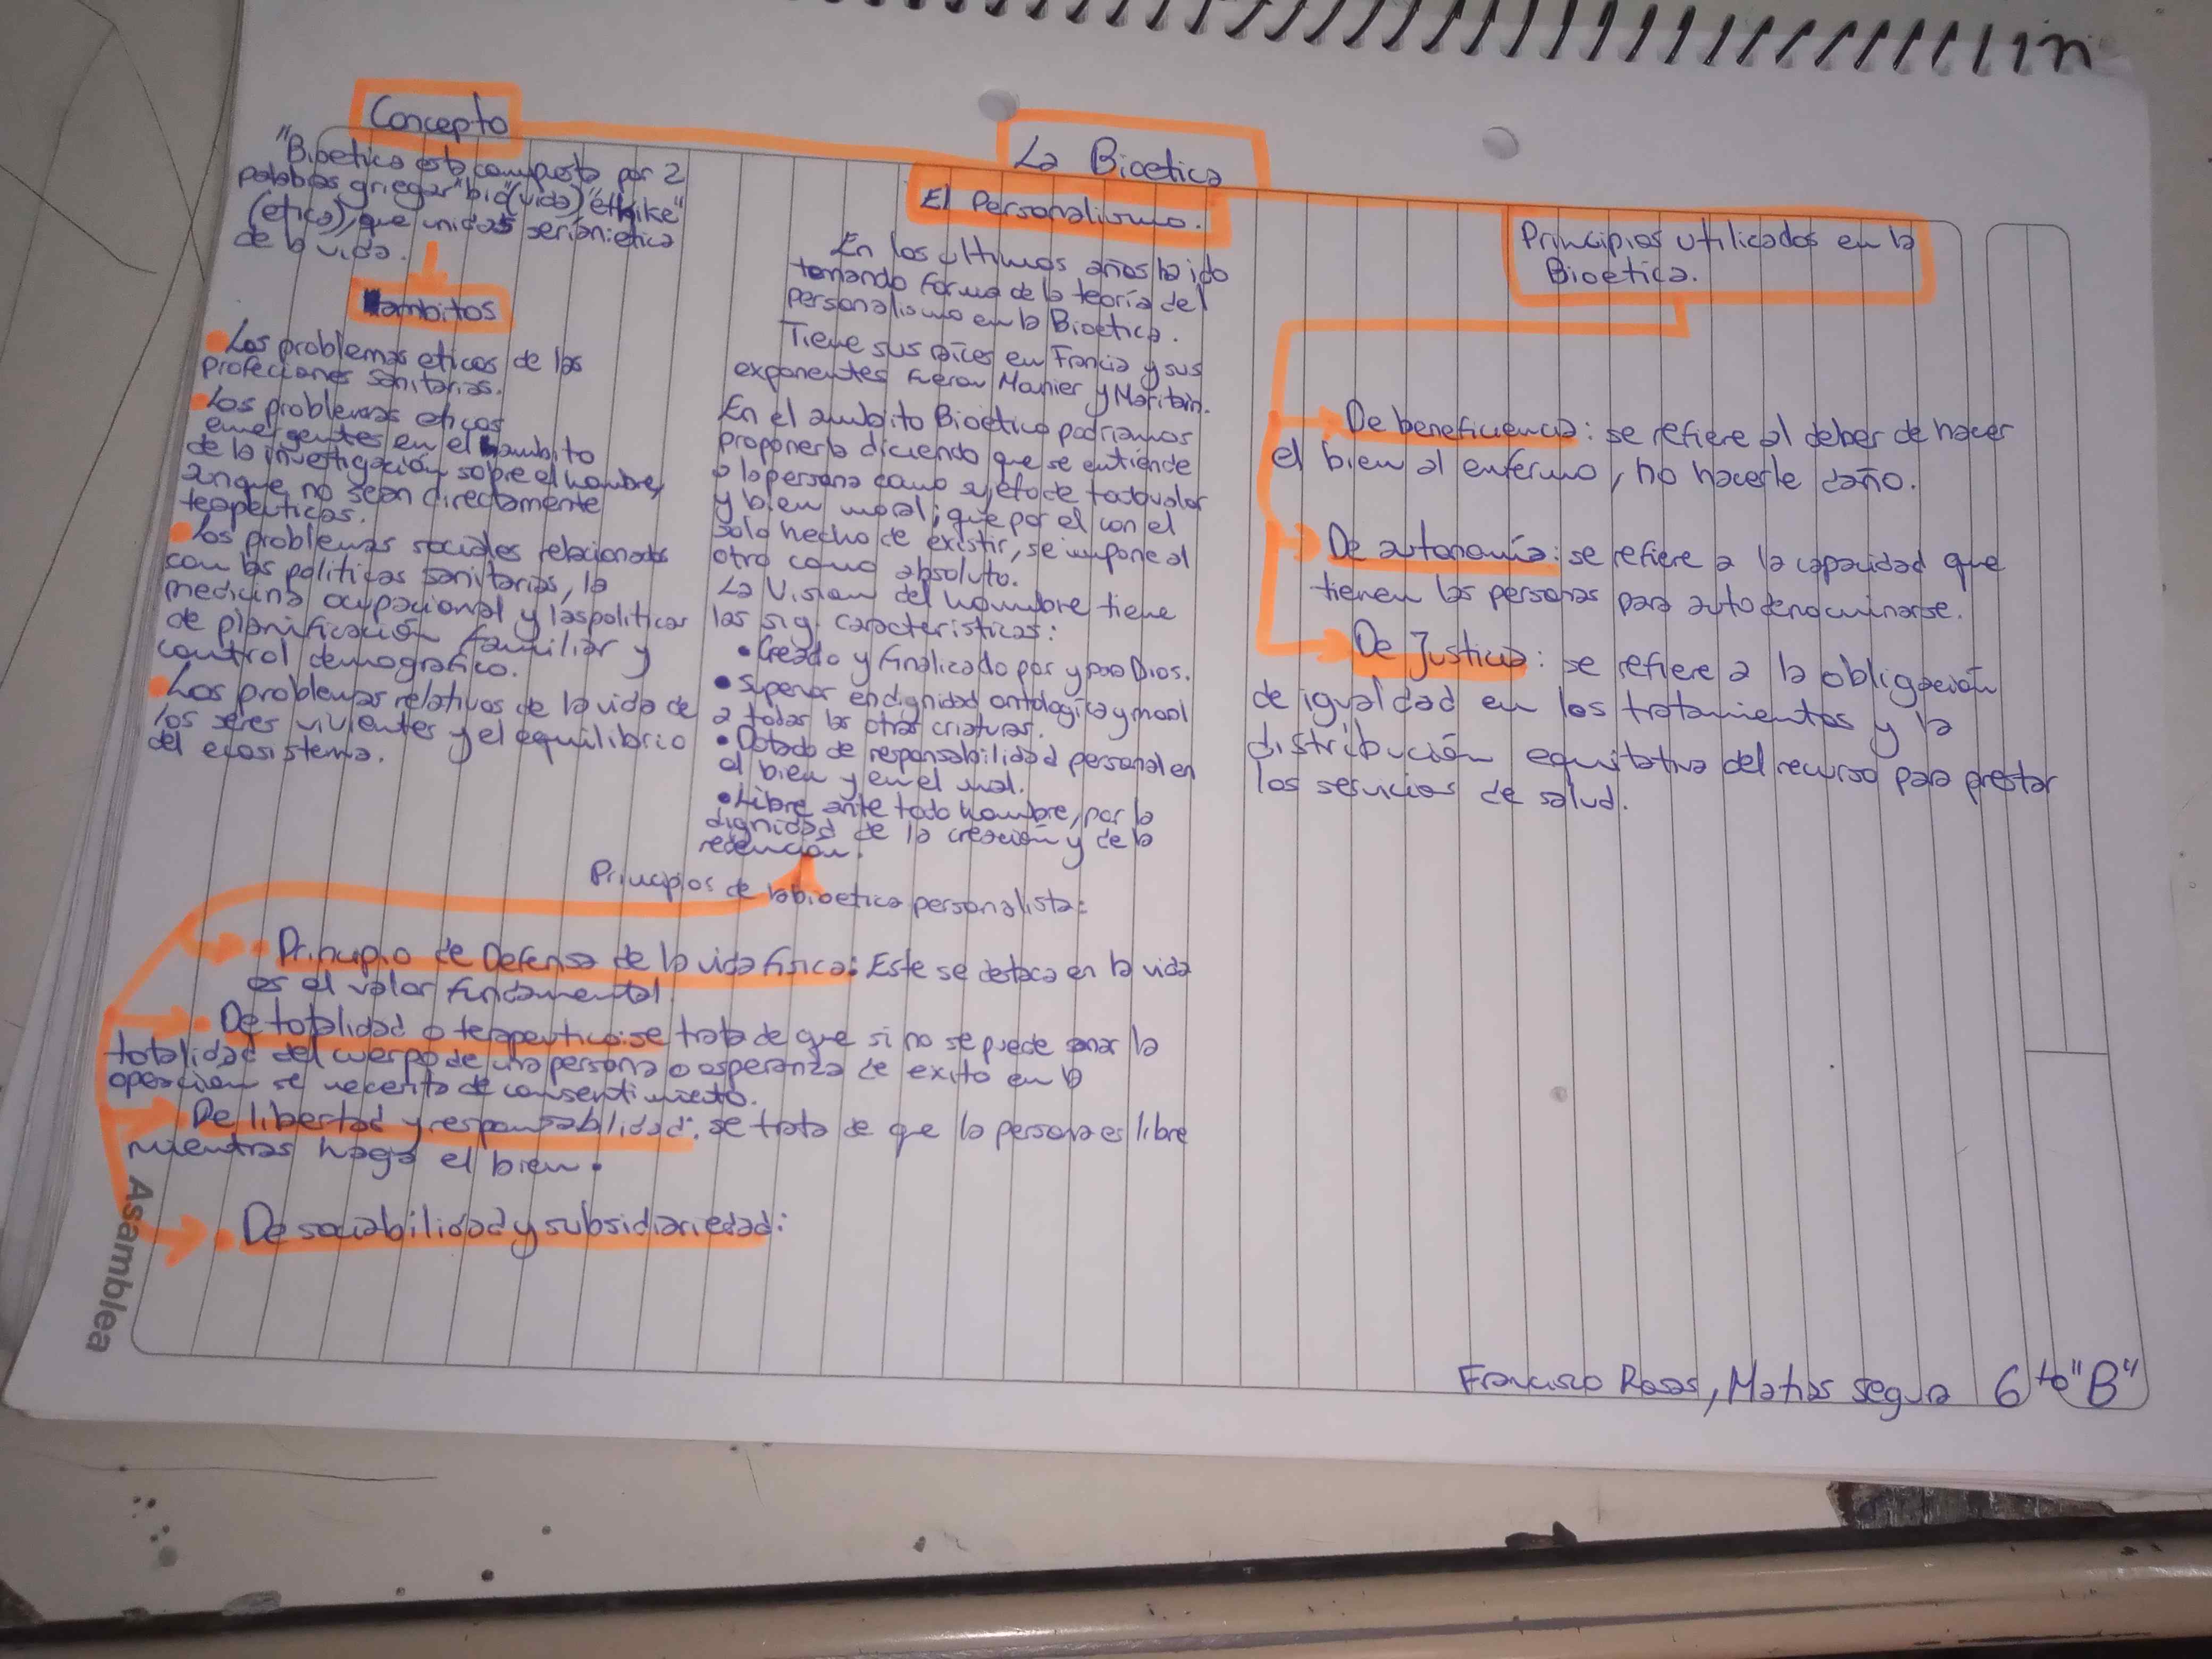 La Bioetica
Concepto
"Bioetica esta compuesta por 2
palabras griegar "bio"(vida) "ethike"
(etica), que unidas serian:etica
de la vida.
ambitos
Los problemas eticos de las
profeciones sanitarias.
Los problemas eticos
emergentes en el ambito
de la investigación sobre el hombre,
anque no sean directamente
terapeuticos.
Los problemas sociales relacionados
con las politicas sanitarias, la
medicina ocupacional y las politicas
de planificación familiar y
control demografico.
Los problemas relativos de la vida de
los seres vivientes y el equilibrio
del ecosistema.
El Personalismo.
En los ultimos años ha ido
tomando forma de la teoría del
personalismo en la Bioetica.
Tiene sus raíces en Francia y sus
exponentes fueron Mounier y Maritain.
En el ambito Bioetico podriamos
proponerla diciendo que se entiende
a la persona como sujeto de todo valor
y bien moral; que por el con el
solo hecho de existir, se impone al
otro como absoluto.
La Vision del hombre tiene
las sig. caracteristicas:
• Creado y finalizado por y para Dios.
• Superior en dignidad ontologica y moral
a todas las otras criaturas.
• Dotado de responsabilidad personal en
el bien y en el mal.
• Libre ante todo hombre, por la
dignidad de la creación y de la
redencion.
Principios de la bioetica personalista:
• Principio de Defensa de la vida fisica: Este se destaca en la vida
es el valor fundamental
• De totalidad o terapeutico: se trata de que si no se puede sanar la
totalidad del cuerpo de una persona o esperanza de exito en la
operacion se necesita de consentimiento.
De libertad y responsabilidad: se trata de que la persona es libre
mientras haga el bien.
• De sociabilidad y subsidiariedad:
Principios utilicados en la
Bioetica.
De beneficiencia: se refiere al deber de hacer
el bien al enfermo, no hacerle daño.
De autonomía: se refiere a la capacidad que
tienen las personas para autodenominarse.
De Justicia: se refiere a la obligación
de igualdad en los tratamientos y la
distribución equitativa del recurso para prestar
los servicios de salud.
Asamblea
Francisco Rosas, Matias segura 6to "B"